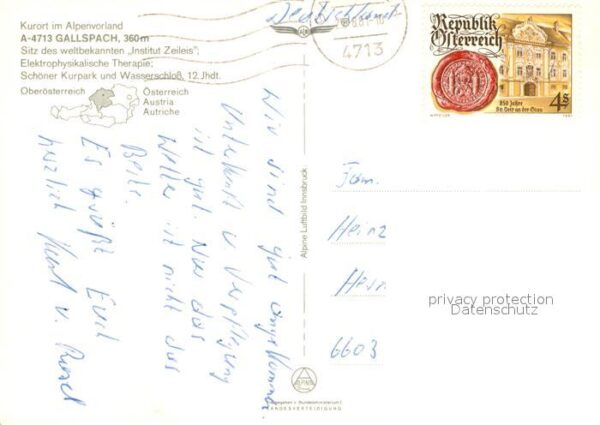 Kurort im Alpenvorland
A-4713 GALLSPACH, 360m
Sitz des weltbekannten „Institut Zeileis";
Elektrophysikalische Therapie;
Schöner Kurpark und Wasserschloß, 12. Jhdt.
Oberösterreich
Österreich
Austria
Autriche
Deutschland
4713
Republik
Österreich
850 Jahre
St. Veit an der Glan
4S
1981
Wir sind gut angekommen.
Unterkunft u. Verpflegung
ist gut. Nur das
Wetter ist nicht das
Beste.
Es grüßt Euch
herzlich
u.
Alpine Luftbild Innsbruck
ALPINE
LANDESVERTEIDIGUNG
Fam.
Heinz
6603
privacy protection
Datenschutz